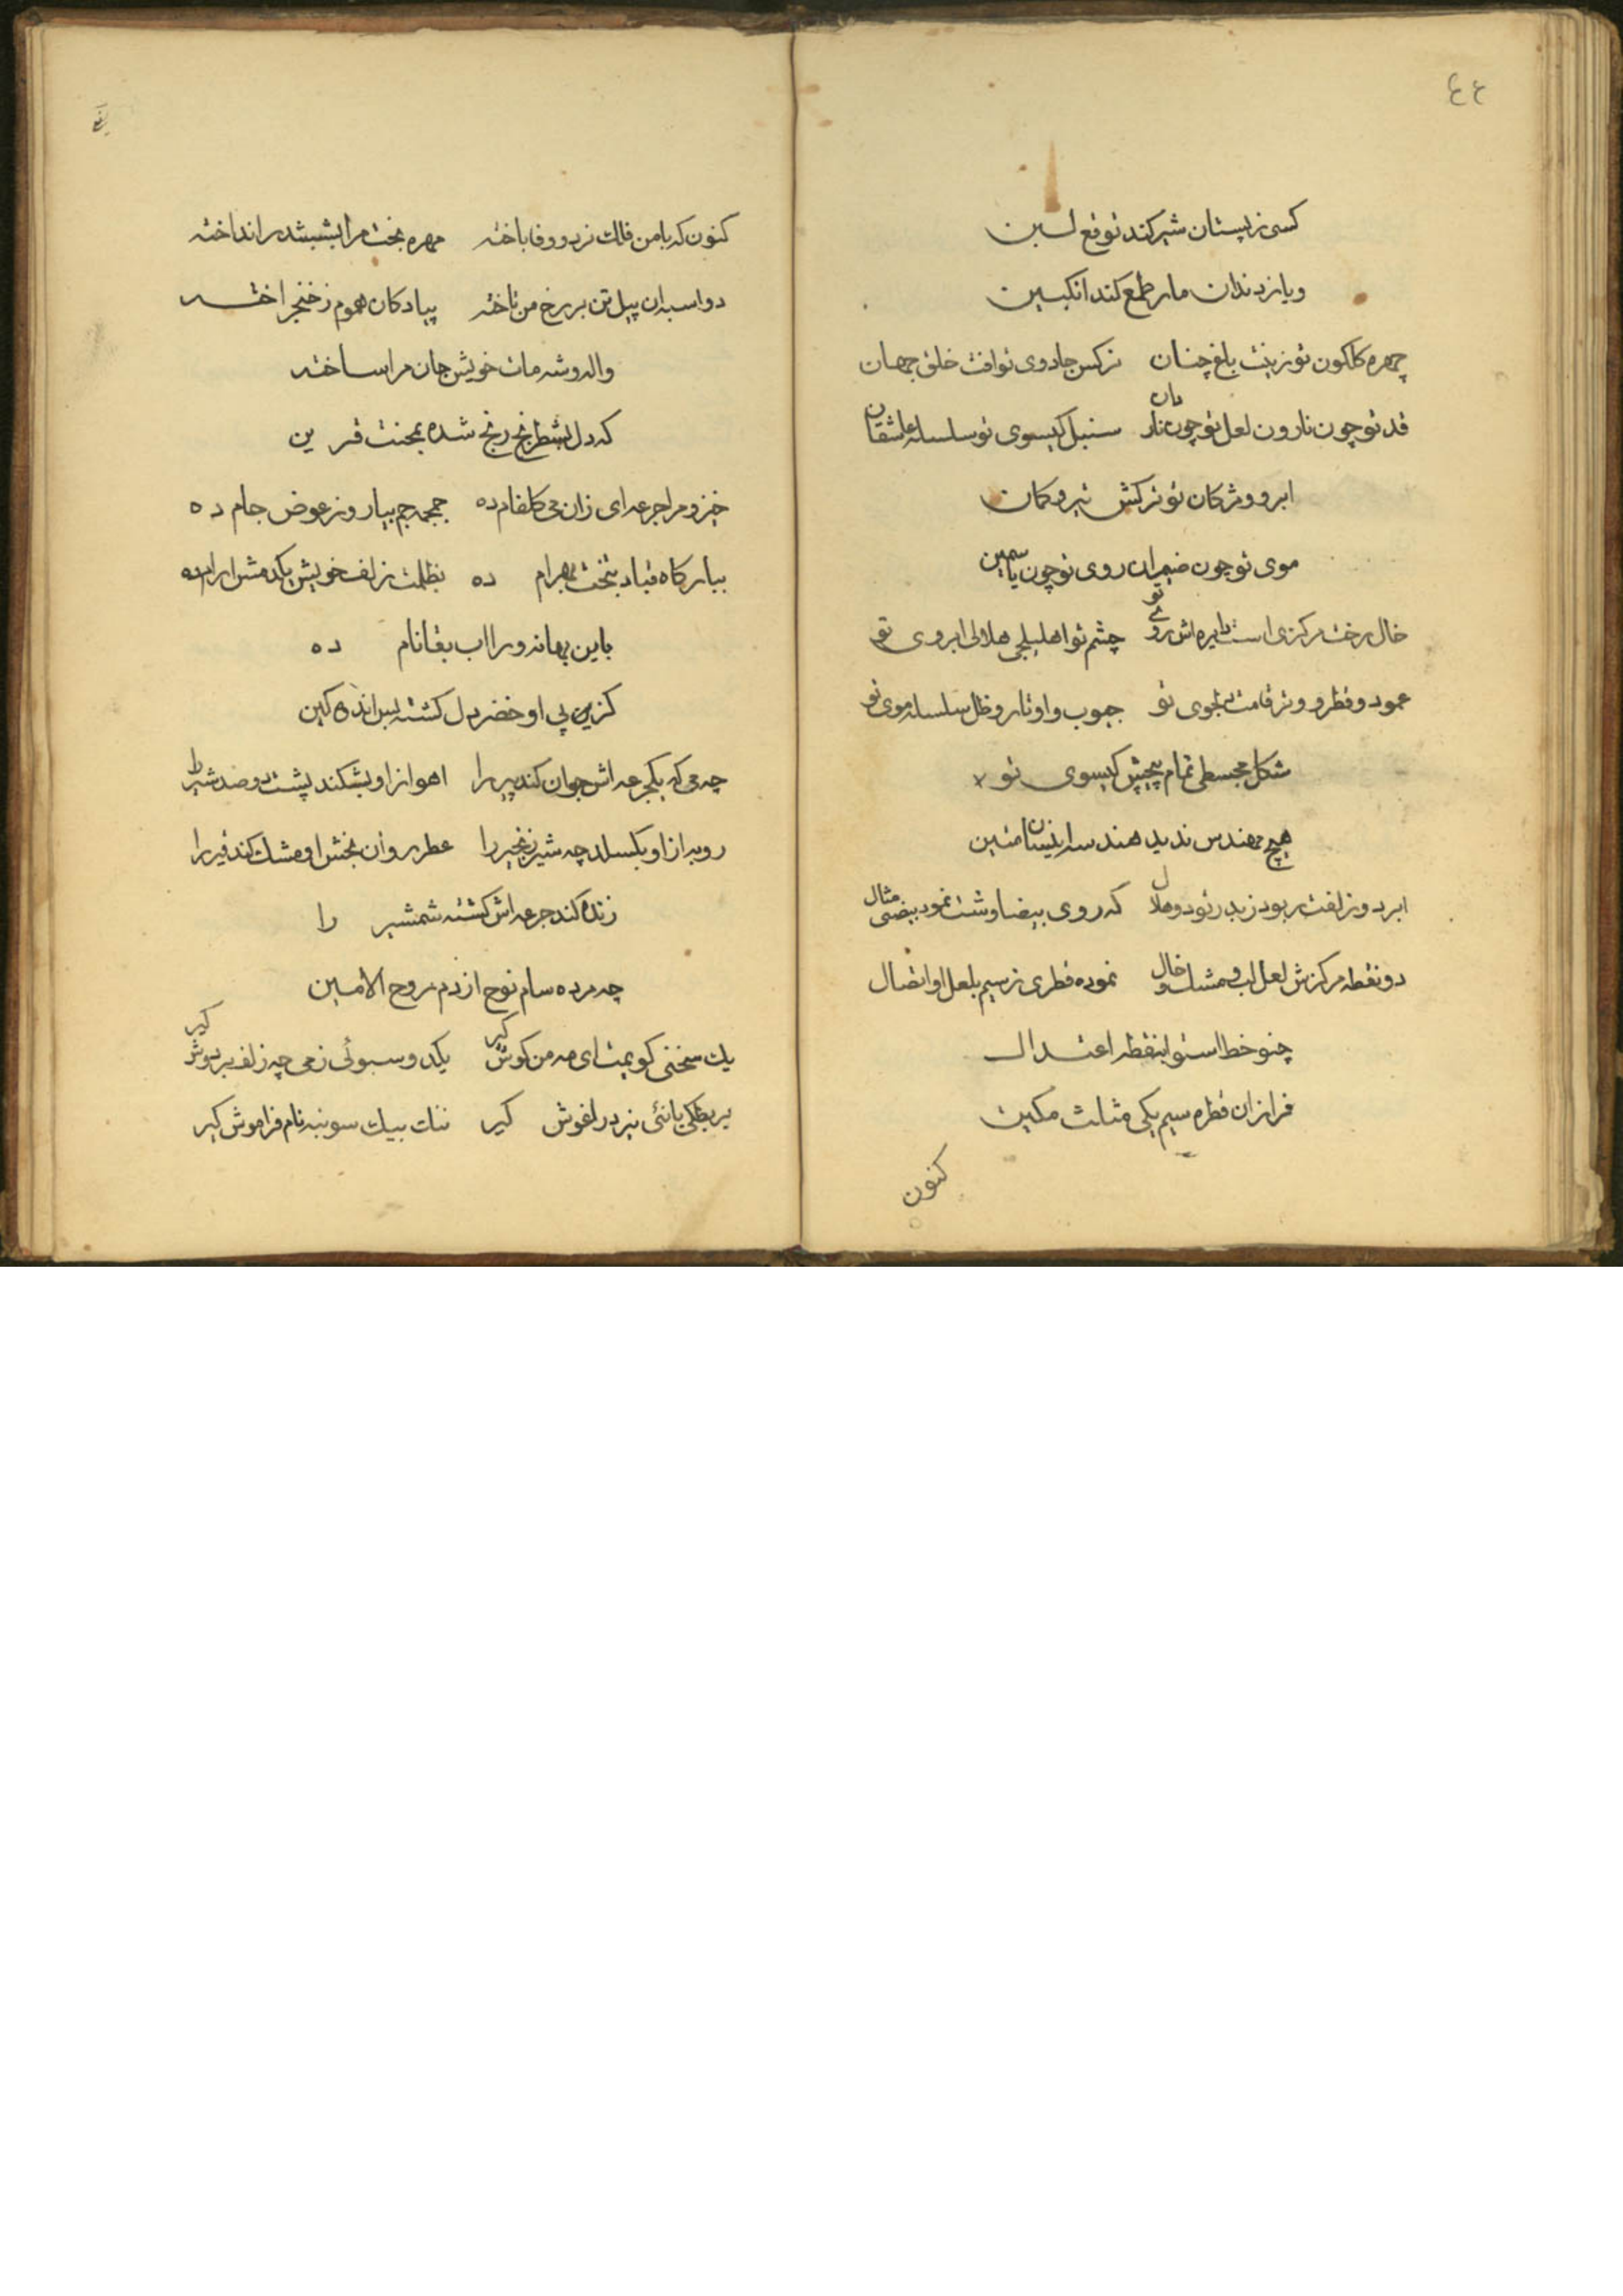 ٤٤
کسی ز پستان شیر کند توقع لبن
و یا ز دندان مار طمع کند انکبین
چهره کلکون تو زینت باغ چنان نرکس جادوی تو افت خلق جهان
قد تو چون نارون لعل تو چون ناردان سنبل کیسوی تو سلسله عاشقان
ابرو و مژکان تو ترکش تیر و کمان
موی تو چون ضیمران روی تو چون یاسمین
خال رخت مرکزی است دایره اش روی تو چشم تو اهلیلجی هلالی ابروی تو
عمود و قطر و وتر قامت دلجوی تو جیوب و اوتار و ظل سلسله موی تو
شکل مجسطی تمام پیچش کیسوی تو
هیچ مهندس ندید هندسه این متین
ابر دو زلفت ربود ز بدر نو دو هلال که روی بیضاوشت نمود بیضی مثال
دو نقطه مرکزش لعل لب و مشک خال نموده قطری ز سیم بلعل او اتصال
چنو خط استوا بنقطه اعتدال
فراز ان قطره سیم یکی مثلث مکین
کنون
کنون که با من فلک نرد و وفا باخته مهره بخت مرا بششدر انداخته
دو اسبه ان پیل تن بر رخ من تاخته پیادکان هموم ز خنجر اخته
واله و شه مات خویش جان مرا ساخته
که دل بشطرنج رنج شده بمحنت قرین
خیز و مرا جرعه ای زان می کلفام ده جمجمه جم بیار وز عوض جام ده
ببارکاه قباد بتخت بهرام ده بظلمت زلف خویش یکدمش ارام ده
باین بهانه ورا اب بقا نام ده
کزین پی او خضر دل کشته بس اندهکین
چه می که یکجرعه اش جوان کند پیر را اهو از او بشکند پشت دو صد شیر را
روبه از او بکسلد چه شیر زنجیر را عطر روان بخش او مشک کند قیر را
زنده کند جرعه اش کشته شمشیر را
چه مرده سام نوح از دم روح الامین
یک سخنی کویمت ای مه من کوش کیر یکدو سبوئی ز می چه زلف بر دوش کیر
بربطکی یا نئی نیز در اغوش کیر ننک بیک سو بنه نام فراموش کیر